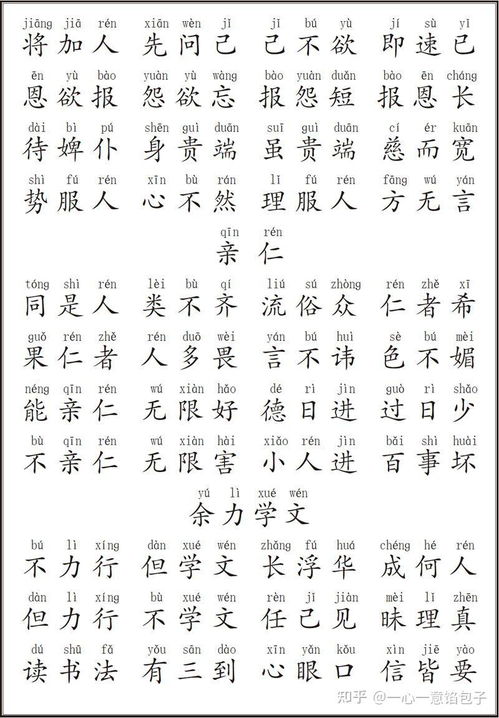 jiāng jiā rén xiān wèn jǐ jǐ bú yù jí sù yǐ
将加人 先问己 己不欲 即速已
ēn yù bào yuàn yù wàng bào yuàn duǎn bào ēn cháng
恩欲报 怨欲忘 报怨短 报恩长
dài bì pú shēn guì duān suī guì duān cí ér kuān
待婢仆 身贵端 虽贵端 慈而宽
shì fú rén xīn bù rán lǐ fú rén fāng wú yán
势服人 心不然 理服人 方无言
qīn rén
亲仁
tóng shì rén lèi bù qí liú sú zhòng rén zhě xī
同是人 类不齐 流俗众 仁者希
guǒ rén zhě rén duō wèi yán bú huì sè bú mèi
果仁者 人多畏 言不讳 色不媚
néng qīn rén wú xiàn hǎo dé rì jìn guò rì shǎo
能亲仁 无限好 德日进 过日少
bù qīn rén wú xiàn hài xiǎo rén jìn bǎi shì huài
不亲仁 无限害 小人进 百事坏
yú lì xué wén
余力学文
bú lì xíng dàn xué wén zhǎng fú huá chéng hé rén
不力行 但学文 长浮华 成何人
dàn lì xíng bù xué wén rèn jǐ jiàn mèi lǐ zhēn
但力行 不学文 任己见 昧理真
dú shū fǎ yǒu sān dào xīn yǎn kǒu xìn jiē yào
读书法 有三到 心眼口 信皆要
知乎 @一心一意馅包子